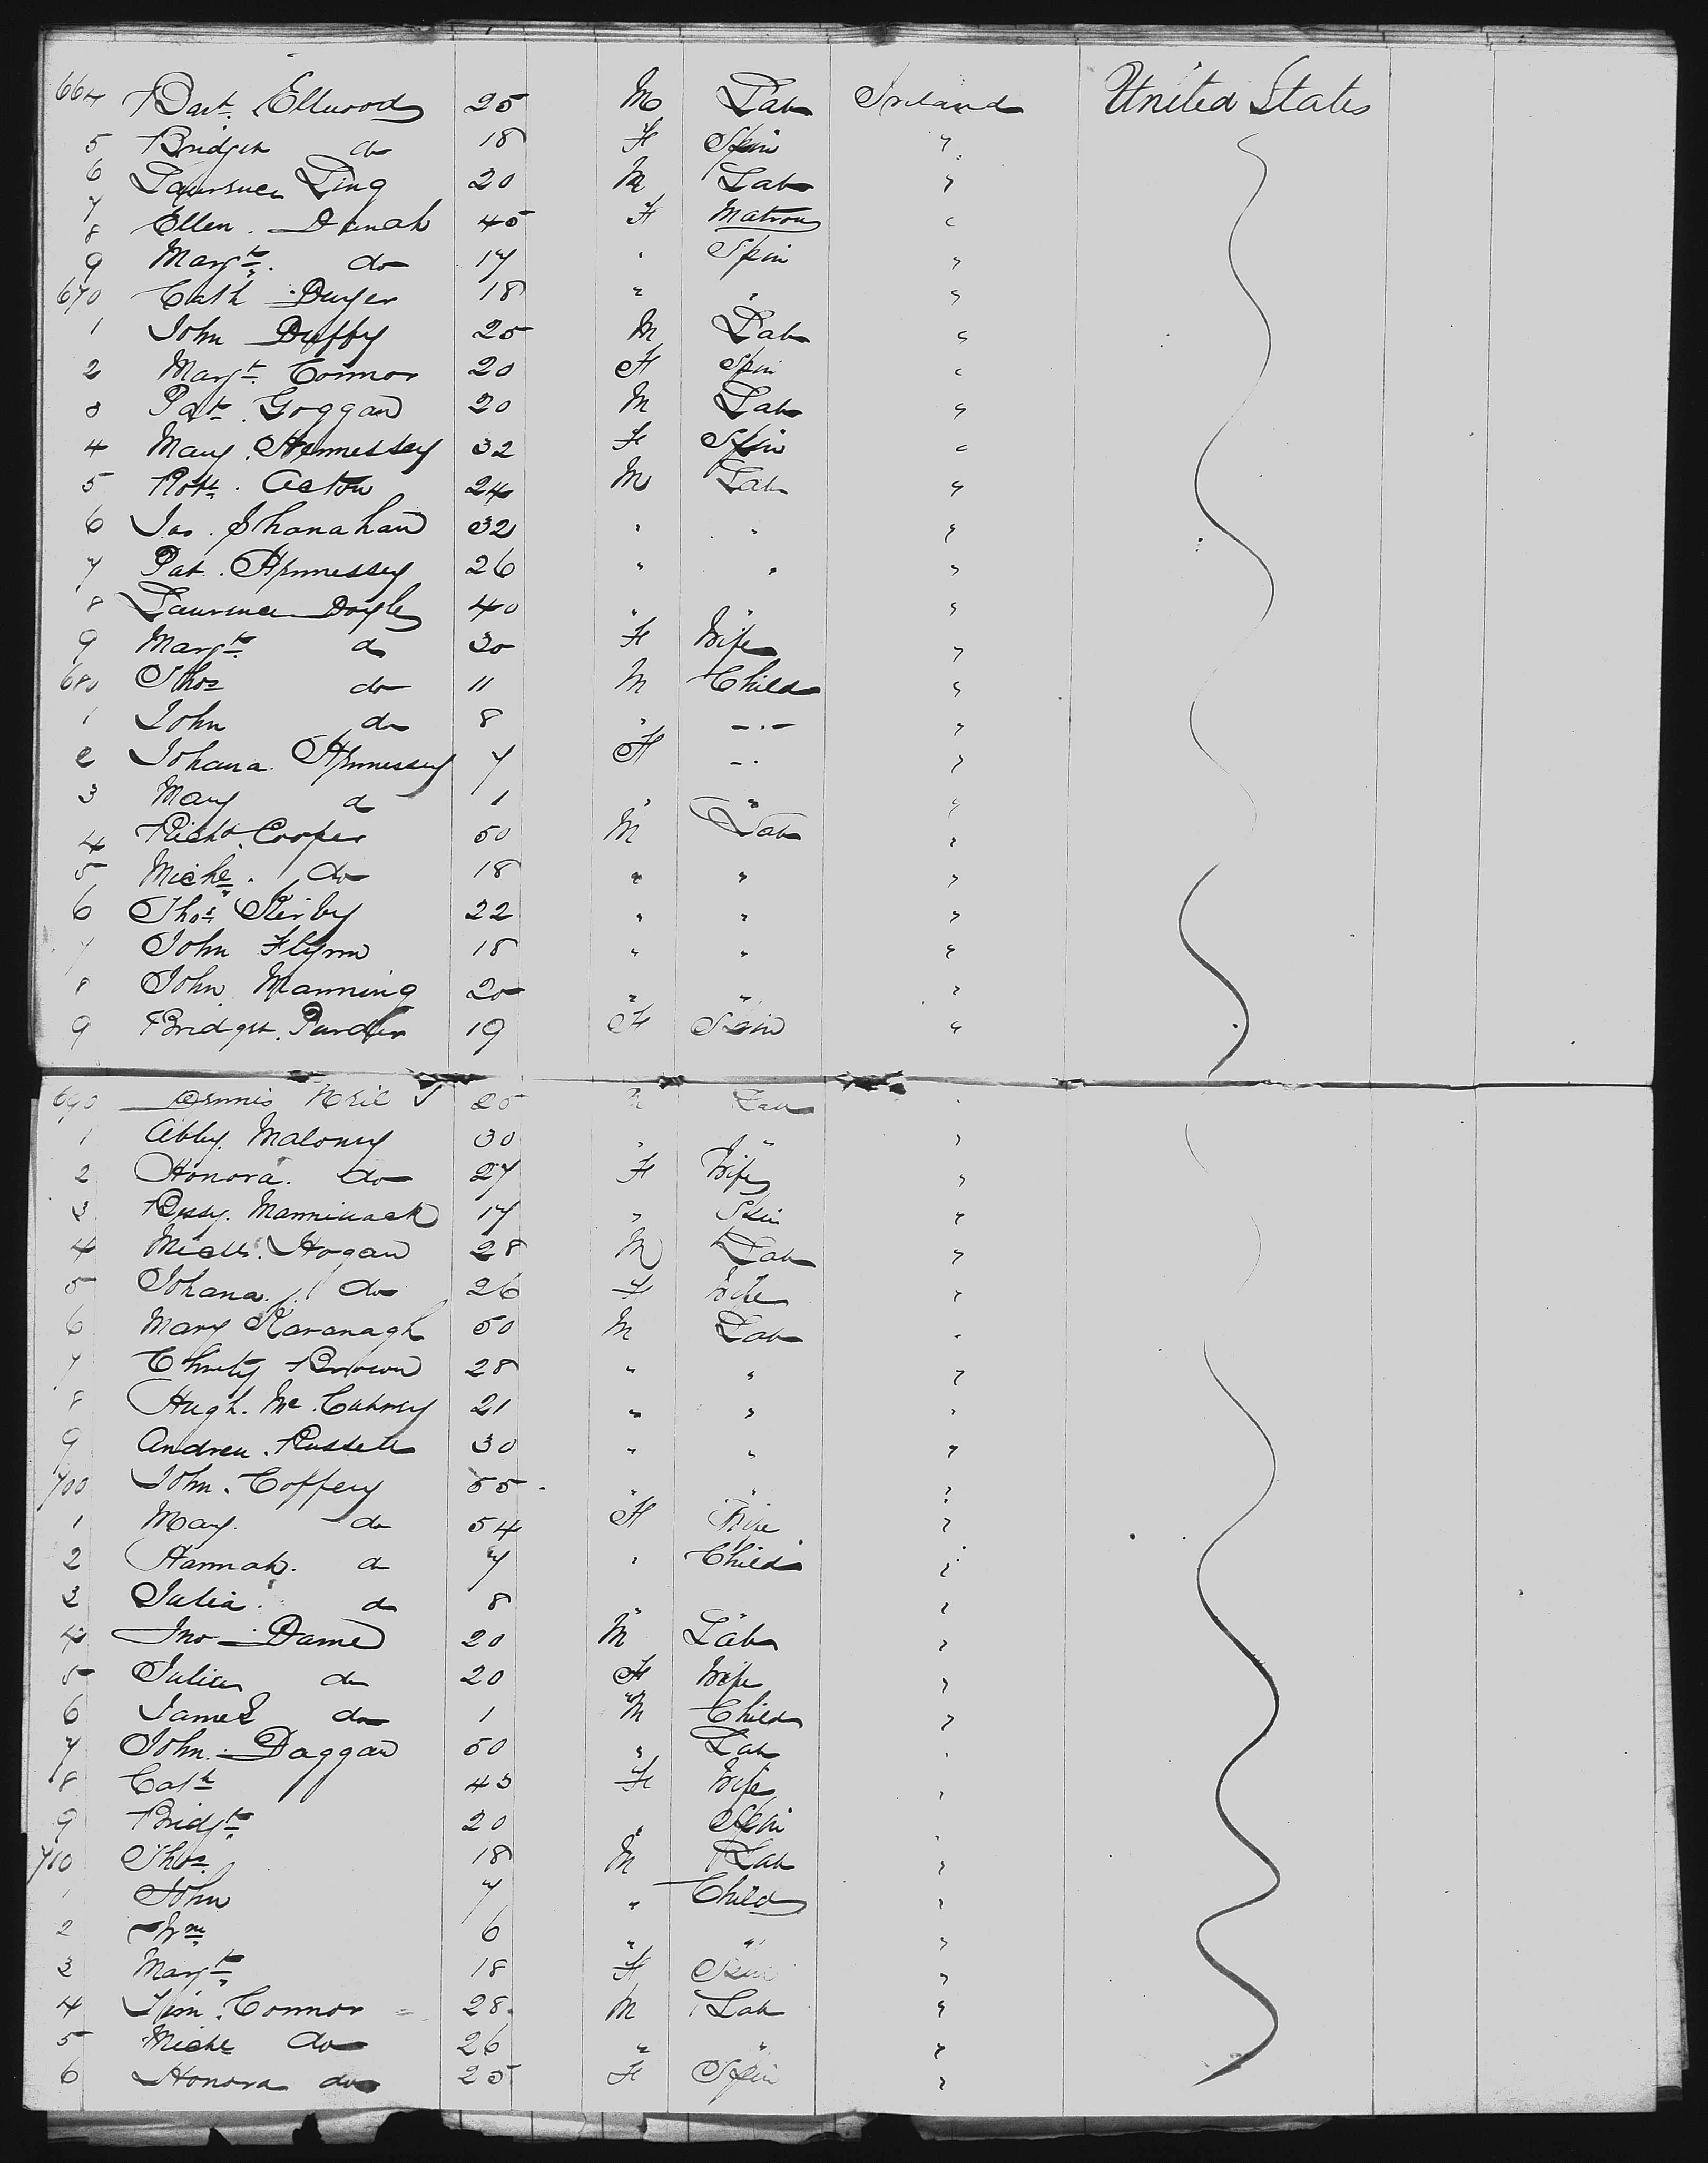 664 Bart. Ellwood 25 M Lab Ireland United States
5 Bridget do 18 F Spin "
6 Laurence Ling 20 M Lab "
7
8 Ellen 45 F Matron "
9 Margt. do 17 " Spin "
670 Cath Dwyer 18 " " "
1 John Duffy 25 M Lab "
2 Margt. Connor 20 F Spin "
3 Pat. Goggan 20 M Lab "
4 Mary Hennessey 32 F Spin "
5 Robt. Acton 24 M Lab "
6 Jas. Shanahan 32 " " "
7 Pat. Hennessey 26 " " "
8 Laurence Doyle 40 " " "
9 Margt. do 30 F Wife "
680 Thos do 11 M Child "
1 John do 8 " " "
2 Johana Hennessey 7 F " "
3 Mary do 1 " " "
4 Richd. Cooper 50 M Lab "
5 Michl. do 18 " " "
6 Thos. Kirby 22 " " "
7 John Flynn 18 " " "
8 John Manning 20 " " "
9 Bridget 19 F Spin "
690 Dennis Neil 25 M Lab "
1 Abby. Maloney 30 " " "
2 Honora. do 27 F Wife "
3 Bessy. 17 " Spin "
4 Michl. Hogan 28 M Lab "
5 Johana. do 26 F Wife "
6 Mary Kavanagh 50 M Lab "
7 Christy Brown 28 " " "
8 Hugh. Mc. 21 " " "
9 Andrew. Russell 30 " " "
700 John. Coffey 55 " " "
1 Mary. do 54 F Wife "
2 Hannah. do 7 " Child "
3 Julia. do 8 " " "
4 Jno Dame 20 M Lab "
5 Julia do 20 F Wife "
6 James do 1 M Child "
7 John. Doggan 50 " Lab "
8 Cath 43 F Wife "
9 Bridgt. 20 " Spin "
710 Thos. 18 M Lab "
1 John 7 " Child "
2 Wm 6 " " "
3 Margt. 18 F Spin "
4 Tim. Connor 28 M Lab "
5 Michl do 26 " " "
6 Honora do 25 F Spin "